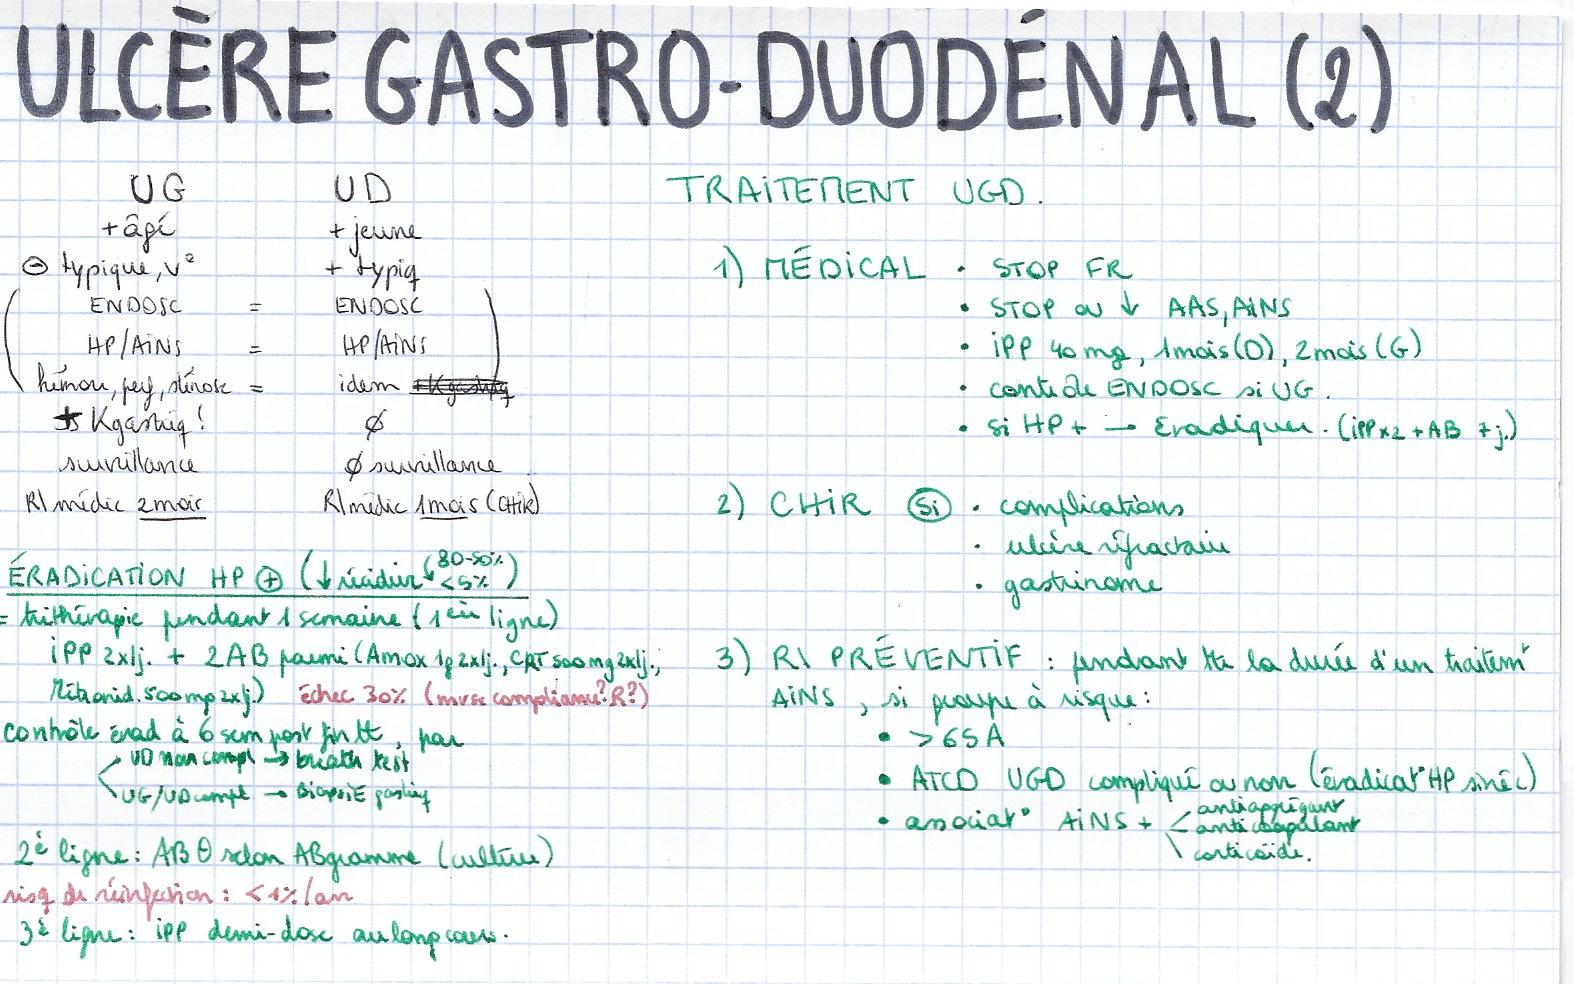 ULCÈRE GASTRO-DUODÉNAL (2)
UG UD
+ âgé + jeune
⊖ typique, v° + typiq
ENDOSC = ENDOSC
HP/AINS = HP/AINS
hémorr, perf, sténose = idem
Kgastriq! ∅
surveillance ∅ surveillance
R\ médic 2 mois R\ médic 1 mois (CHIR)
ÉRADICATION HP ⊕ (↓ récidive ↓ 80-50% <5%)
= trithérapie pendant 1 semaine (1ère ligne)
iPP 2x/j. + 2AB parmi (Amox 1g 2x/j., CRT 500mg 2x/j.,
Métronid. 500mg 2x/j.) échec 30% (mvse compliance? R?)
contrôle érad à 6 sem post fin tt, par
UD non compl → breath test
UG/UD compl → BiOPSIE gastriq
2è ligne : AB θ selon ABgramme (culture)
risq de réinfection : <1%/an
3è ligne : iPP demi-dose au long cours.
TRAITEMENT UGD.
1) MÉDICAL • STOP FR
• STOP ou ↓ AAS, AINS
• iPP 40 mg, 1mois (D), 2 mois (G)
• contrôle ENDOSC si UG.
• si HP + → Eradiquer. (iPPx2 + AB 7j.)
2) CHIR Si • complications
• ulcère réfractaire
• gastrinome
3) R\ PRÉVENTIF : pendant tte la durée d'un traitemt
AINS, si groupe à risque :
• > 65A
• ATCD UGD compliqué ou non (éradicat° HP sinéc)
• associat° AINS + antiagrégant
anticoagulant
corticoïde.